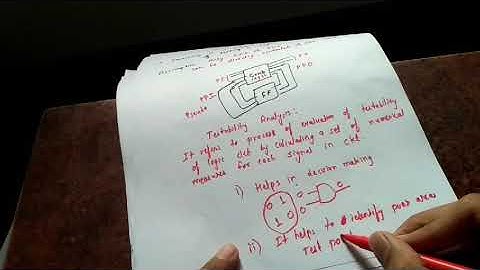 can be directly
PI
PO
PPI
Pseudo
PPO
Comb
logic
FF
Testability Analysis:
It refers to process of evaluation of testability
of logic ckt by calculating a set of numerical
measures for each signal in ckt.
i) Helps in decision making
0 1 0 0
1 0 0
ii) It helps to identify poor areas
Test po